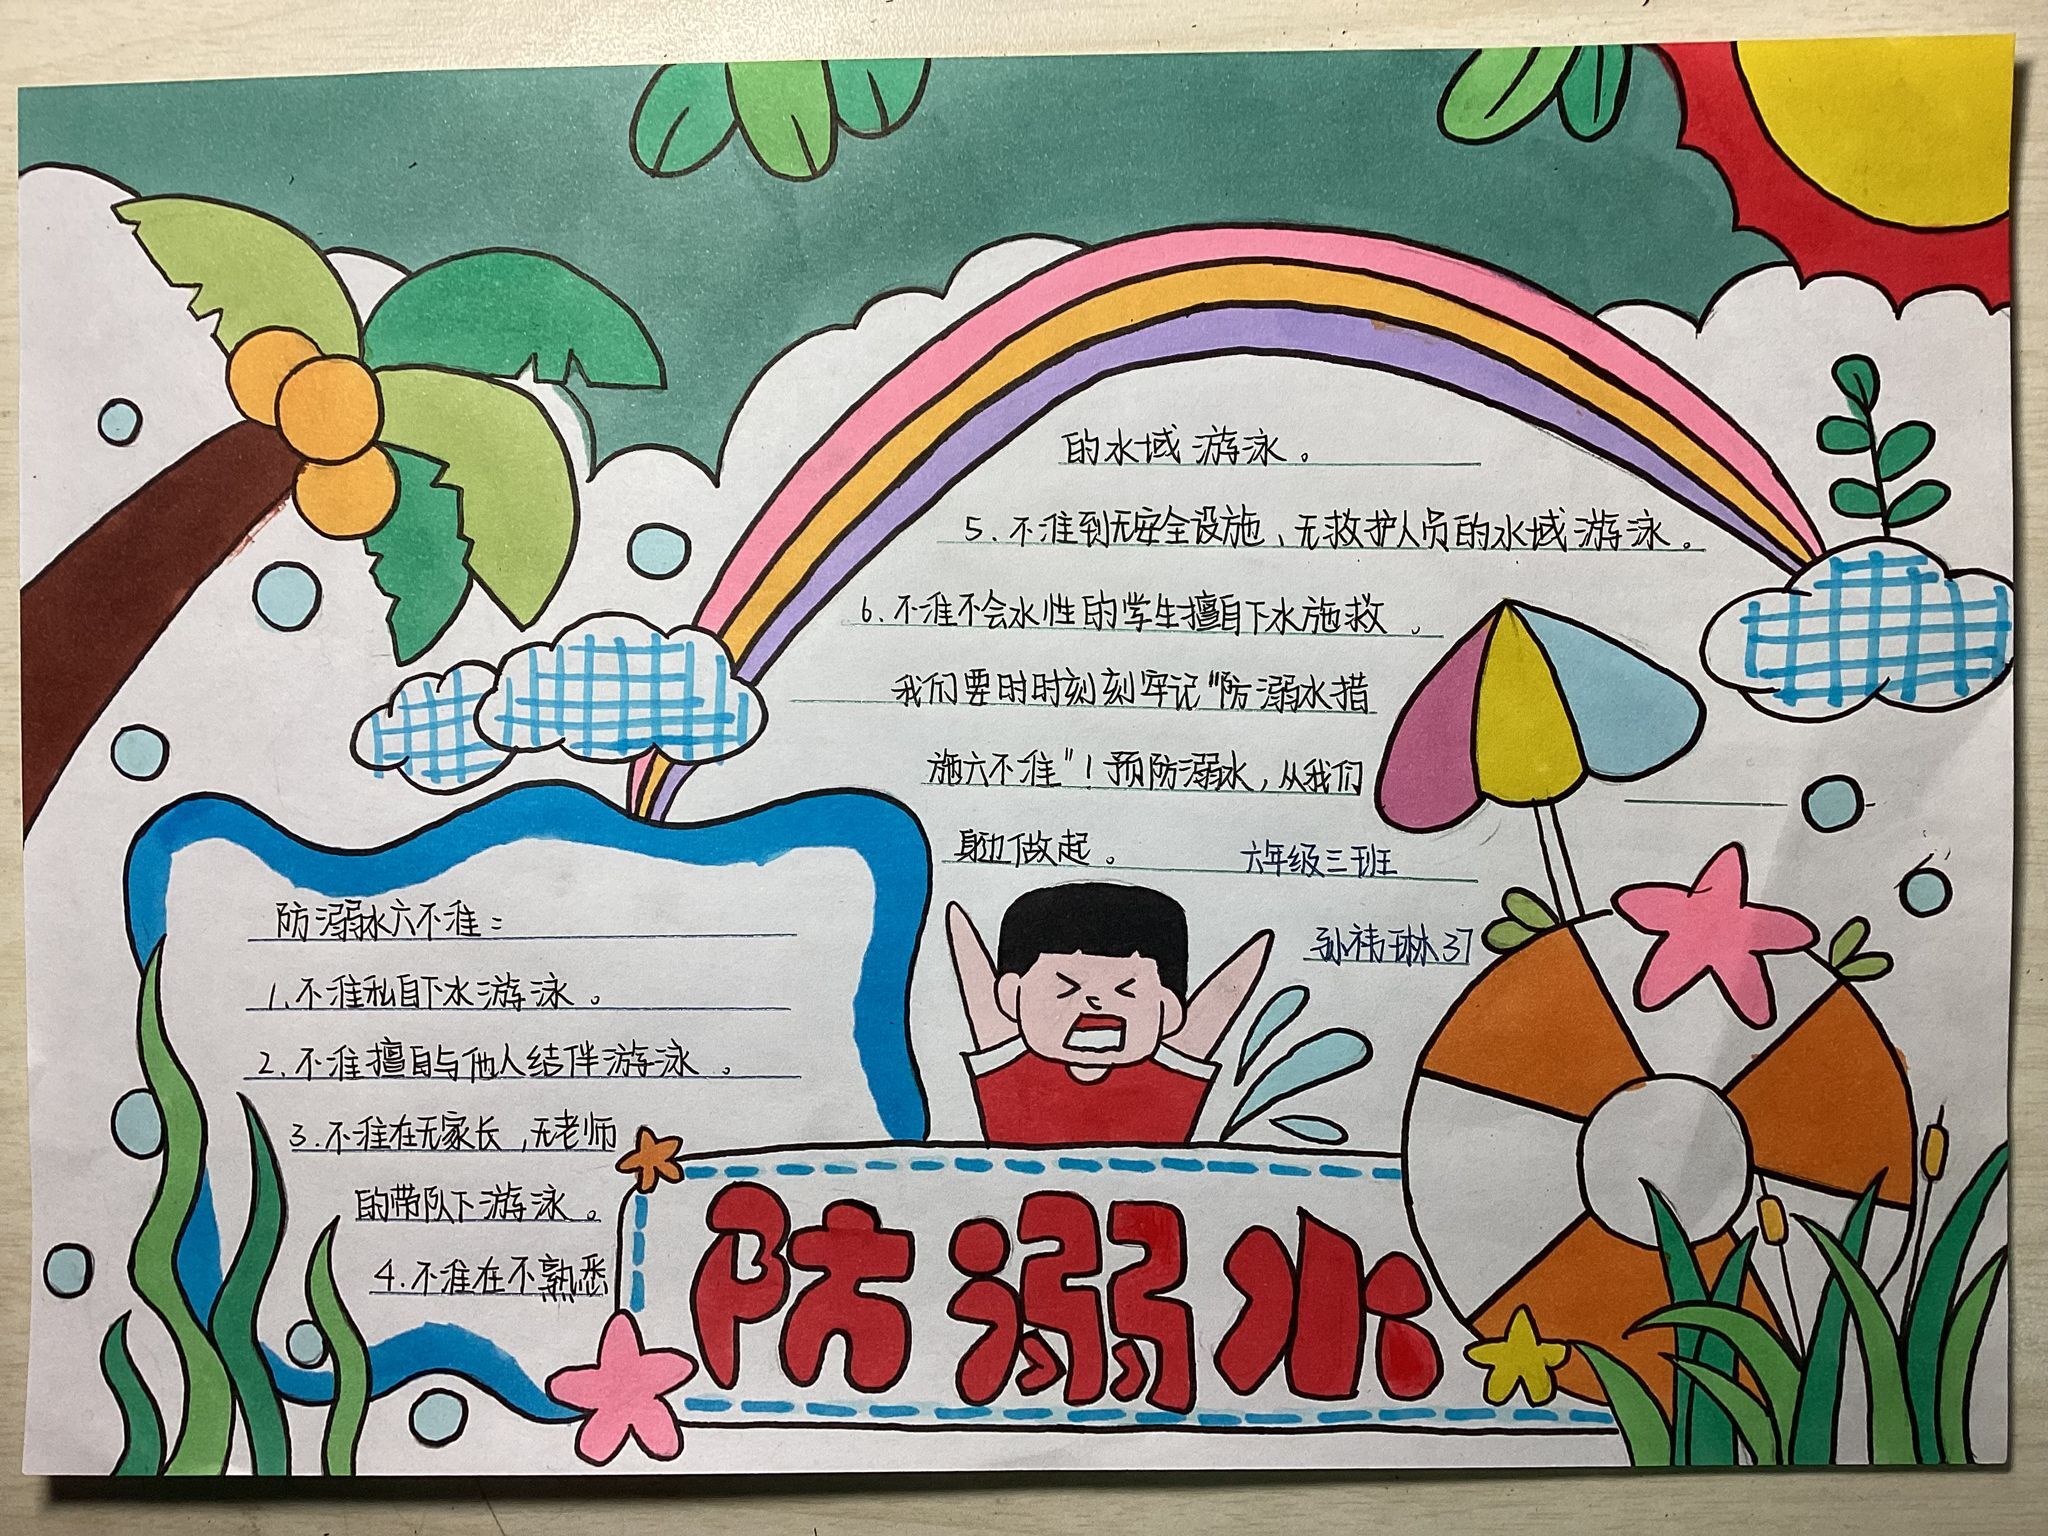 防溺水六不准：
1.不准私自下水游泳。
2.不准擅自与他人结伴游泳。
3.不准在无家长，无老师
的带队下游泳。
4.不准在不熟悉
的水域游泳。
5.不准到无安全设施、无救护人员的水域游泳。
6.不准不会水性的学生擅自下水施救。
我们要时时刻刻牢记"防溺水措
施六不准"！预防溺水，从我们
身边做起。
六年级三班
孙祎琳37
防溺水